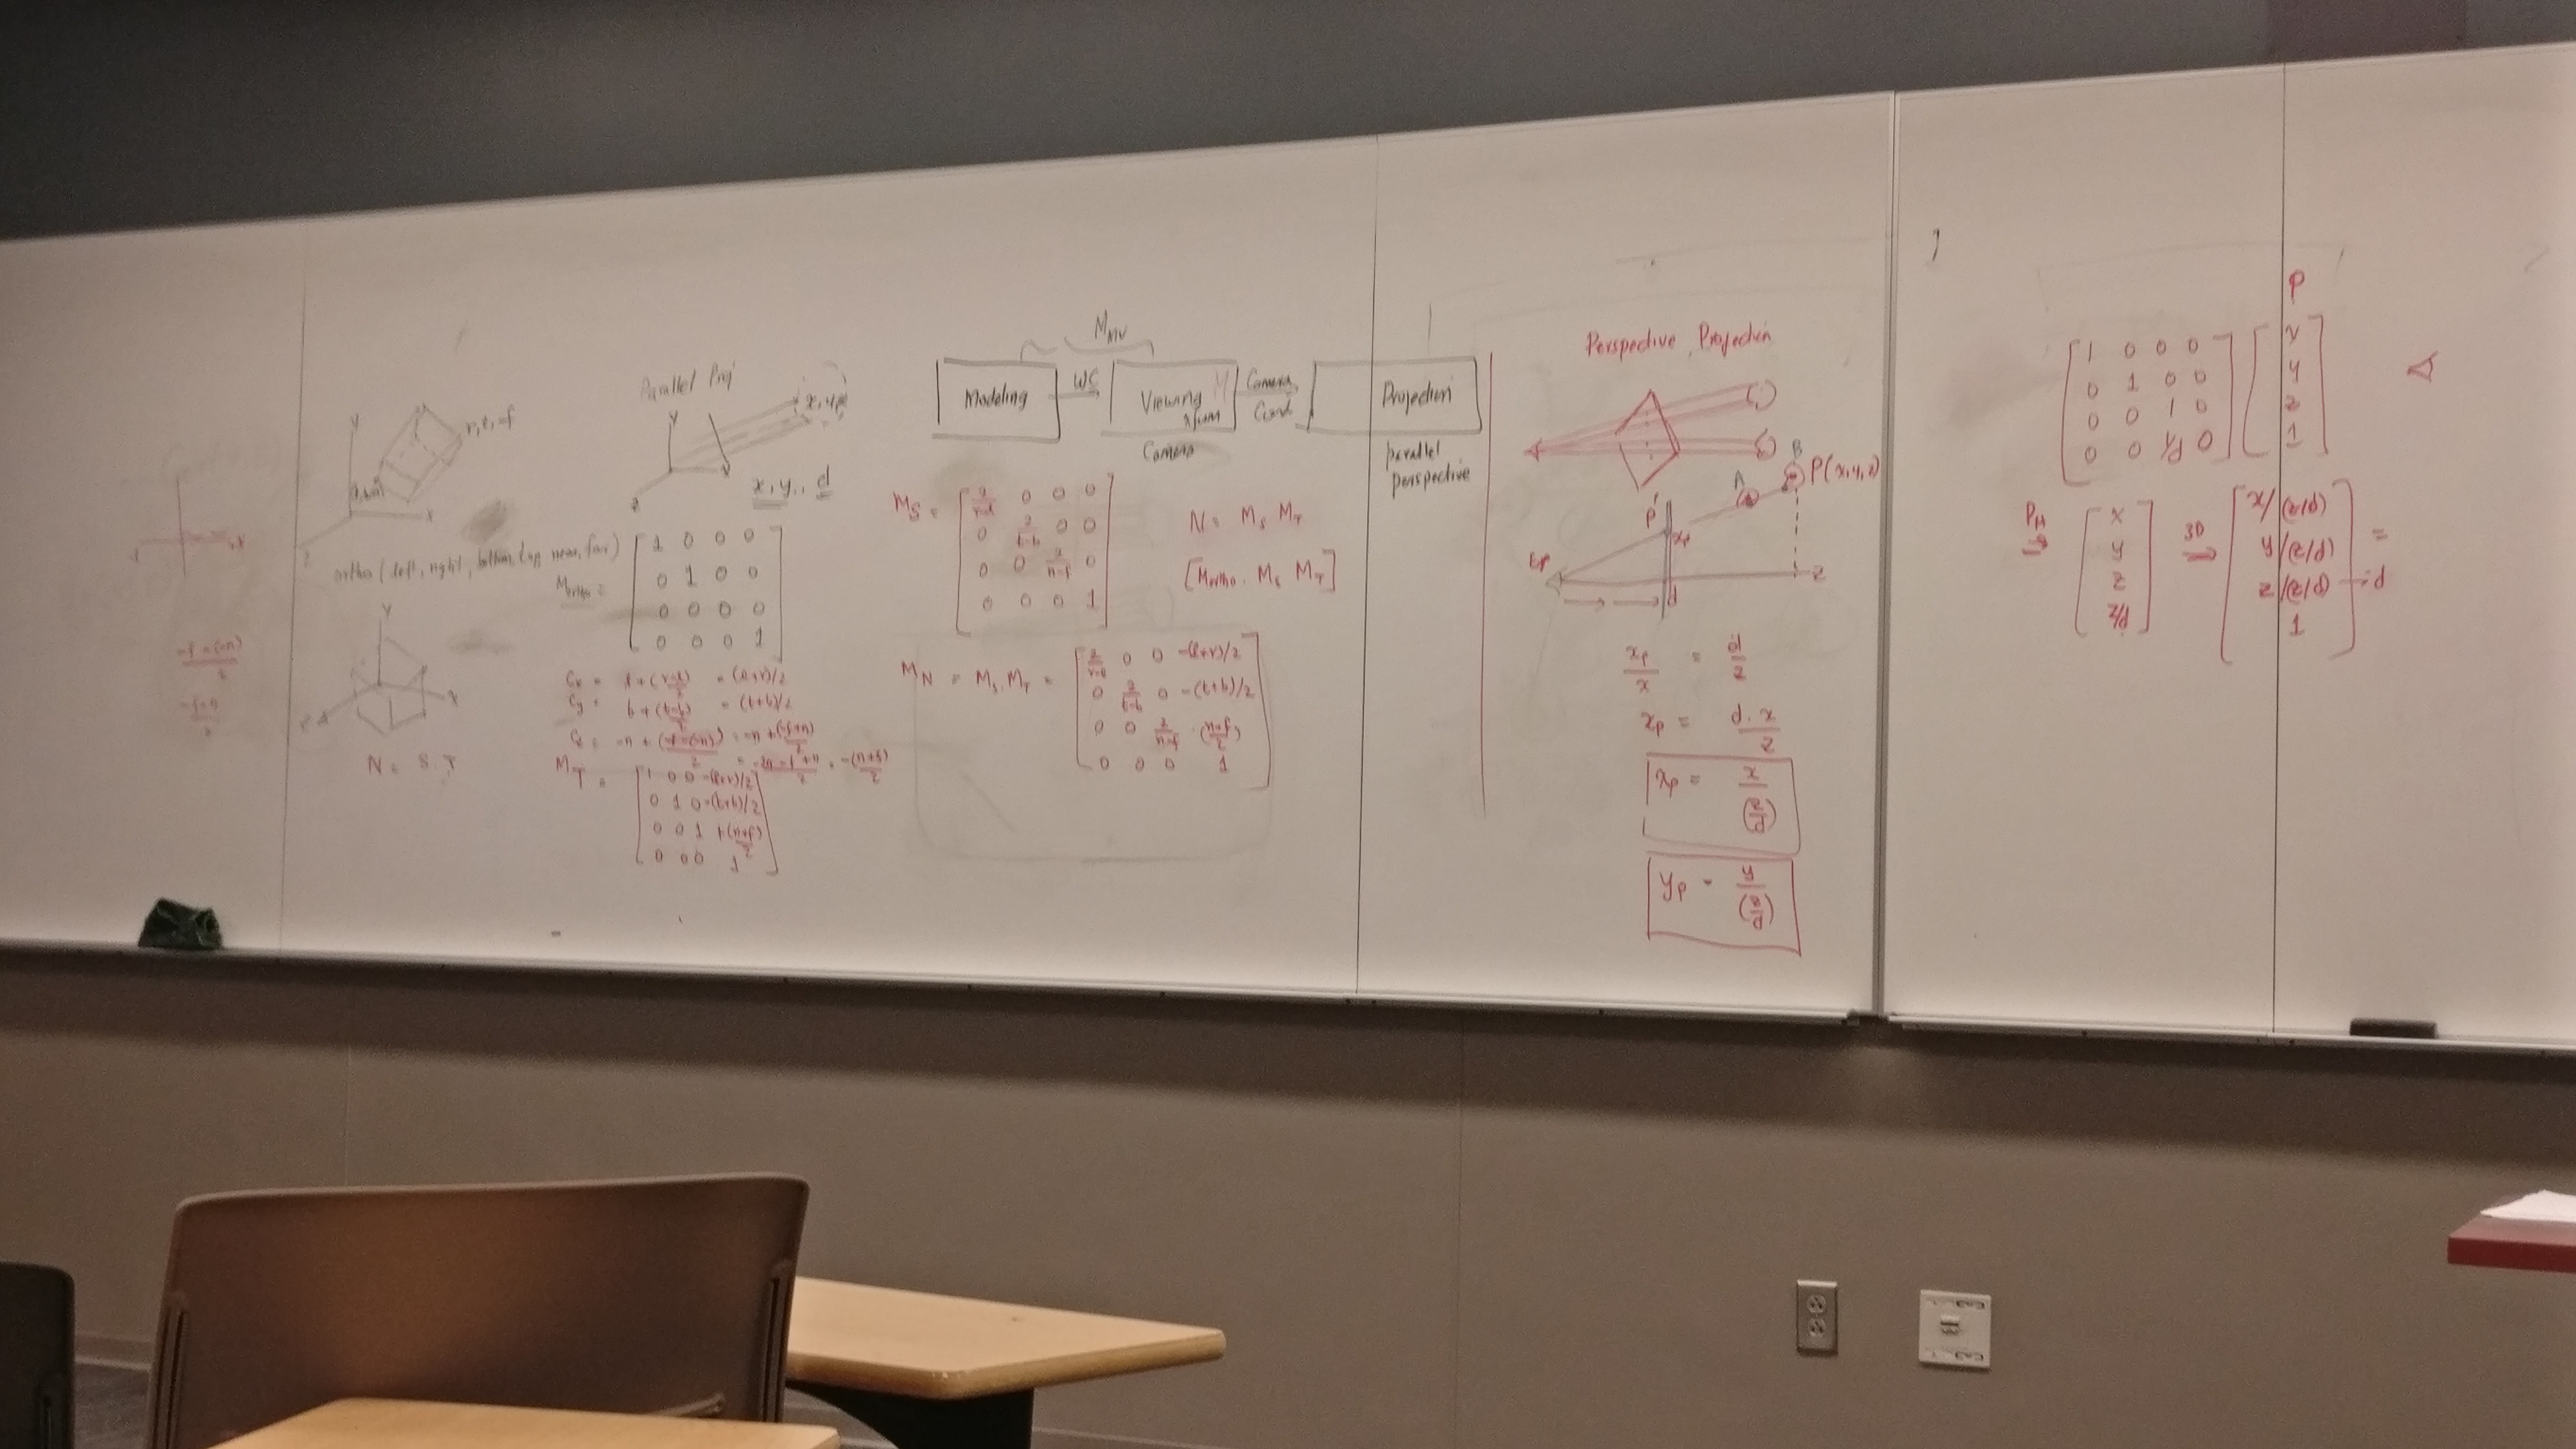 y
r, t, -f
x
z
ortho (left, right, bottom, top near, far)
y
x
z
N = S.T
-f-(-n)
2
-f+n
2
Parallel Proj
y
x, y,
z
x, y, , d
Mortho =
1 0 0 0
0 1 0 0
0 0 0 0
0 0 0 1
Cx = l + (r-l)/2 = (l+r)/2
Cy = b + (t-b)/2 = (t+b)/2
Cz = -n + (-f-(-n))/2 = -n + (-f+n)/2
= -2n-f+n/2 = -(n+f)/2
MT =
1 0 0 -(l+r)/2
0 1 0 -(t+b)/2
0 0 1 +(n+f)/2
0 0 0 1
MMV
Modeling
WC
Viewing
xform
Camera
Camera
Coord
Projection
parallel
perspective
MS =
2/r-l 0 0 0
0 2/t-b 0 0
0 0 2/n-f 0
0 0 0 1
N = MS MT
[Mortho . MS MT]
MN = MS . MT =
2/r-l 0 0 -(l+r)/2
0 2/t-b 0 -(t+b)/2
0 0 2/n-f (n+f)/2
0 0 0 1
Perspective Projection
A
B
P(x,y,z)
P'
xp
d
z
xp/x = d/z
xp = d.x/z
xp = x/(z/d)
yp = y/(z/d)
P
1 0 0 0
0 1 0 0
0 0 1 0
0 0 1/d 0
x
y
z
1
PH
x
y
z
z/d
3D
x/(z/d)
y/(z/d)
z/(z/d) = d
1
=